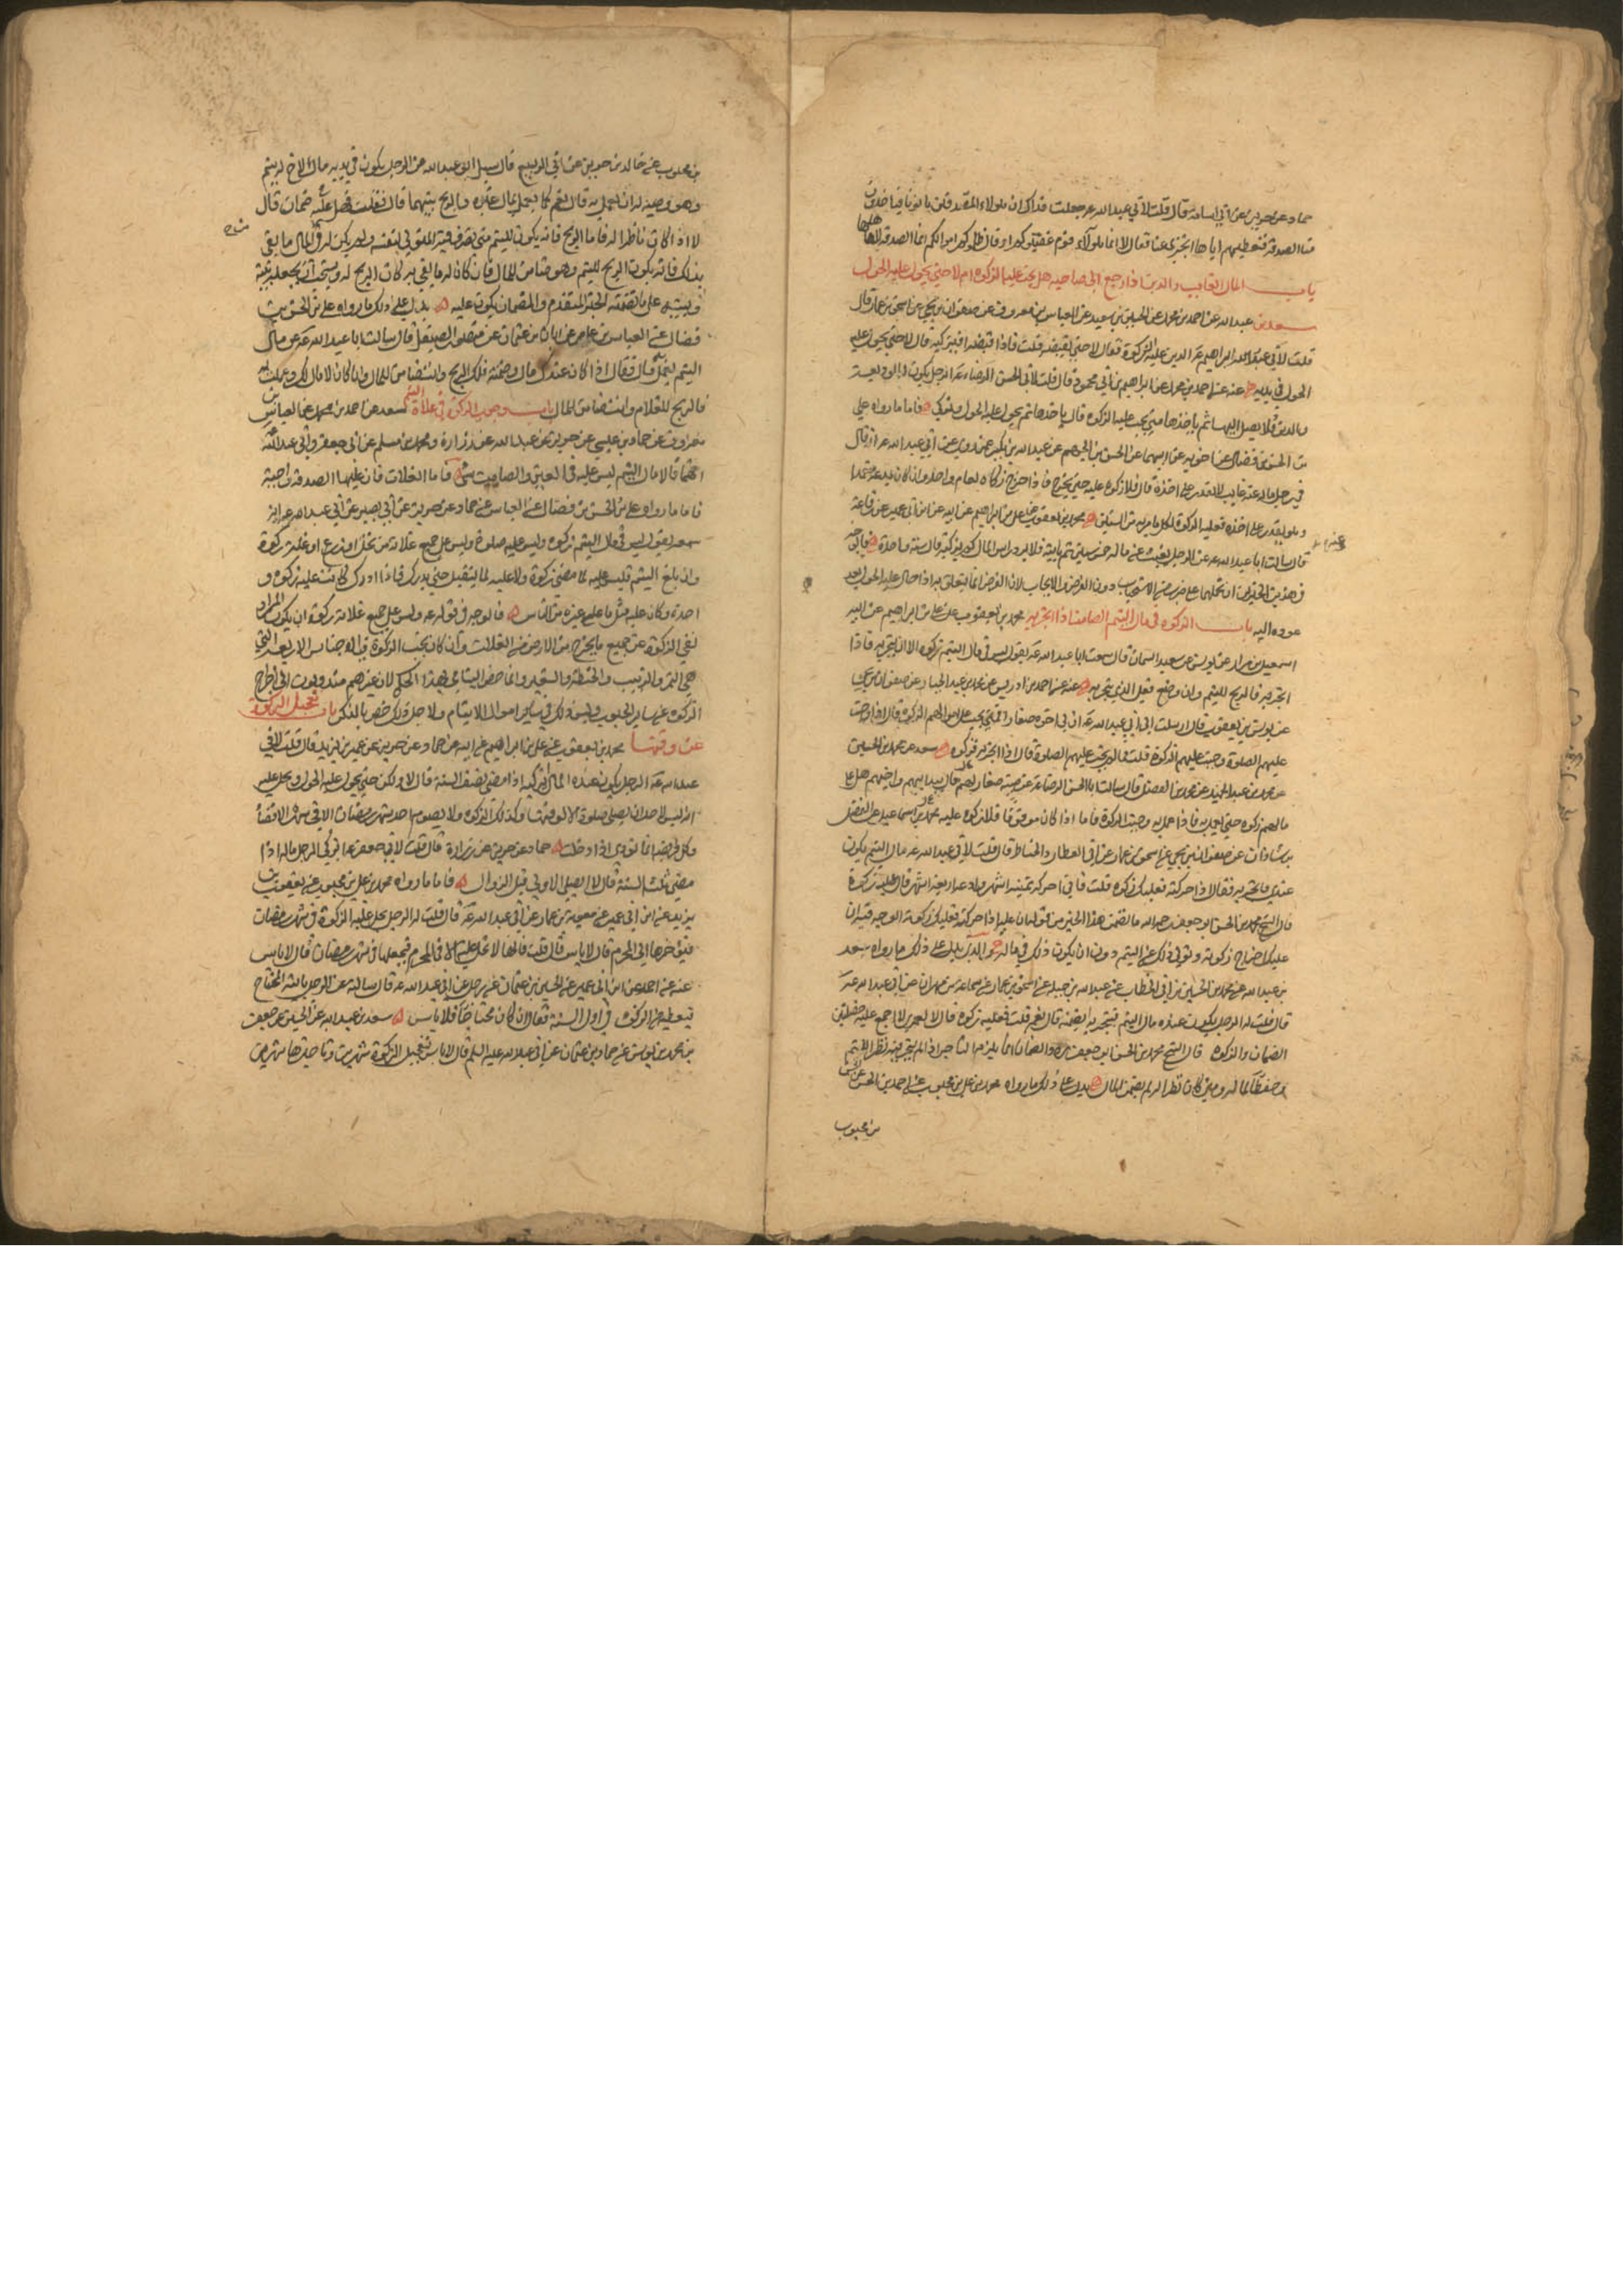 حماد عن حريز عن ابي اسامة قال قلت لابي عبد الله ع جعلت فداك ان هولاء المصدقين ياتونا فياخذون
منا الصدقة فنعطيهم اياها اتجزي عنا فقال لا انما هولاء قوم غصبوكم او قال ظلموكم اموالكم انما الصدقة لاهلها
باب المال الغايب والدين اذا رجع الى صاحبه هل يجب عليه الزكوة ام لا حتى يحول عليه الحول
سعد بن عبد الله عن احمد بن محمد عن الحسين بن سعيد عن العباس بن معروف عن صفوان بن يحيى عن اسحق بن عمار قال
قلت لابي ابراهيم ع الدين عليه الزكوة فقال لا حتى يقبضه قلت فاذا قبضه ايزكيه قال لا حتى يحول عليه
الحول في يديه عنه عن احمد بن محمد عن ابراهيم بن ابي محمود قال قلت لابي الحسن الرضا ع الرجل يكون له الوديعة
والدين فلا يصل اليهما ثم ياخذهما متى يجب عليه الزكوة قال ياخذهما ثم يحول عليه الحول ويزكي فاما ما رواه علي
بن الحسن بن فضال عن اخويه عن ابيهما عن الحسن بن الجهم عن عبد الله بن بكير عمن رواه عن ابي عبد الله ع انه قال
في رجل ماله عنه غايب لا يقدر على اخذه قال فلا زكوة عليه حتى يخرج فاذا خرج زكاه لعام واحد وان كان يدعه متعمدا
وهو يقدر على اخذه فعليه الزكوة لكل ما مر به من السنين محمد بن يعقوب عن علي بن ابراهيم عن ابيه عن ابن ابي عمير عن رفاعة
قال سالت ابا عبد الله ع عن الرجل يغيب عنه ماله خمس سنين ثم ياتيه فلا يرد راس المال كم يزكيه قال سنة واحدة فالوجه
في هذين الخبرين ان نحملهما على ضرب من الاستحباب دون الفرض والايجاب لان الفرض انما يتعلق به اذا حال عليه الحول بعد
عوده اليه باب الزكوة في مال اليتيم الصامت اذا اتجر به محمد بن يعقوب عن علي بن ابراهيم عن ابيه
اسمعيل بن مرار عن يونس عن سعيد السمان قال سمعت ابا عبد الله ع يقول ليس في مال اليتيم زكوة الا ان يتجر به فاذا
اتجر به فالربح لليتيم وان وضع فعلى الذي يتجر به عنه عن احمد بن ادريس عن محمد بن عبد الجبار عن صفوان بن يحيى
عن يونس بن يعقوب قال ارسلت الى ابي عبد الله ع ان لي اخوة صغارا فمتى يجب على اموالهم الزكوة قال اذا وجبت
عليهم الصلوة وجبت عليهم الزكوة قلت فما لم يجب عليهم الصلوة قال اذا اتجر به فزكوه سعد عن محمد بن الحسين
عن محمد بن عبد الحميد عن محمد بن الفضيل قال سالت ابا الحسن الرضا ع عن صبية صغار لهم مال بيد ابيهم واخيهم هل على
مالهم زكوة حتى يعمل به فاذا عمل به وجبت الزكوة فاما اذا كان موقوفا فلا زكوة عليه محمد بن اسماعيل عن الفضل
بن شاذان عن صفوان بن يحيى عن اسحق بن عمار عن ابي العطارد الخياط قال قلت لابي عبد الله ع مال اليتيم يكون
عندي فاتجر به فقال اذا حركته فعليك زكوته قلت فاني احركه ثمنية اشهر وادعه اربعة اشهر قال عليك زكوة
قال الشيخ محمد بن الحسن ابو جعفر رحمه الله ما تضمن هذا الخبر من قوله عليه اذا حركته فعليك زكوته الوجه فيه ان
عليك اخراج زكوته وتولي ذلك عن اليتيم دون ان يكون ذلك في ماله والذي يدل على ذلك ما رواه سعد
بن عبد الله عن محمد بن الحسين بن ابي الخطاب عن عبد الله بن جبله عن اسحق بن عمار عن سماعة بن مهران عن ابي عبد الله ع
قال قلت له الرجل يكون عنده مال اليتيم فيتجر به ايضمنه قال نعم قلت فعليه زكوة قال لا لعمري لا اجمع عليه خصلتين
الضمان والزكوة قال الشيخ محمد بن الحسن ابو جعفر ره والضمان انما يلزم التاجر اذا لم يتجر به نظرا لليتيم
وحفظا لماله ومتى كان نظرا له لم يضمن المال يدل على ذلك ما رواه محمد بن علي بن محبوب عن احمد بن الحسن عن الحسن
بن محبوب
بن محبوب عن خالد بن جرير عن ابي الربيع قال سيل ابو عبد الله عن الرجل يكون في يديه مال لاخ له يتيم
وهو وصيه له ان يعمل به قال نعم كما يعمل بمال غيره والربح بينهما قال فقلت فهل عليه ضمان قال
لا اذا كان ناظرا له فاما الربح فانه يكون لليتيم متى تصرف فيه المتولي لنفسه ولم يكن له في المال ما يفي
بذلك فانه يكون الربح لليتيم وهو ضامن للمال فان كان له ما يفي به كان الربح له ويستحب ان يجعله بينه
وبينه على ما تضمنه الخبر المتقدم والضمان يكون عليه يدل على ذلك ما رواه علي بن الحسن بن
فضال عن العباس بن عامر عن ابان بن عثمان عن منصور الصيقل قال سالت ابا عبد الله ع عن مال
اليتيم يعمل به قال فقال اذا كان عندك مال وضمنته فلك الربح وانت ضامن للمال وان كان لا مال لك وعملت به
فالربح للغلام وانت ضامن للمال باب وجوب الزكوة في غلات اليتيم سعد عن احمد بن محمد عن العباس بن
معروف عن حماد بن عيسى عن حريز بن عبد الله عن زرارة ومحمد بن مسلم عن ابي جعفر وابي عبد الله
انهما قالا مال اليتيم ليس عليه في العين والصامت شي فاما الغلات فان عليها الصدقة واجبة
فاما ما رواه علي بن الحسن بن فضال عن العباس عن حماد عن حريز عن ابي بصير عن ابي عبد الله ع انه
سمعه يقول ليس في مال اليتيم زكوة وليس عليه صلوة وليس على جميع غلاته من نخل او زرع او غلة زكوة
وان بلغ اليتيم فليس عليه لما مضى زكوة ولا عليه لما يستقبل حتى يدرك فاذا ادرك كانت عليه زكوة و
احدة وكان عليه مثل ما على غيره من الناس فالوجه في قوله ع وليس على جميع غلاته زكوة ان يكون المراد
نفي الزكوة عن جميع ما يخرج من الارض من الغلات وان كان يجب الزكوة في الاجناس الاربعة التي
هي التمر والزبيب والحنطة والشعير وانما خص اليتامى بهذا الحكم لان غيرهم مندوبون الى اخراج
الزكوة عن ساير الحبوب وليس ذلك في ساير اموال الايتام ولاجل ذلك خص بالذكر باب تعجيل الزكوة
عن وقتها محمد بن يعقوب عن علي بن ابراهيم عن ابيه عن حماد عن حريز عن عمر بن يزيد قال قلت لابي
عبد الله ع الرجل يكون عنده المال ايزكيه اذا مضى نصف السنة قال لا ولكن حتى يحول عليه الحول ويحل عليه
انه ليس لاحد ان يصلي صلوة الا لوقتها وكذلك الزكوة ولا يصوم احد شهر رمضان الا في شهره الا قضاء
وكل فريضة انما تودى اذا حلت حماد عن حريز عن زرارة قال قلت لابي جعفر ع ايزكي الرجل ماله اذا
مضى ثلث السنة قال لا ايصلي الاولى قبل الزوال فاما ما رواه محمد بن علي بن محبوب عن يعقوب بن
يزيد عن ابن ابي عمير عن معوية بن عمار عن ابي عبد الله ع قال قلت له الرجل يحل عليه الزكوة في شهر رمضان
فيؤخرها الى المحرم قال لا باس قال قلت فانها لا تحل عليه الا في المحرم فيعجلها في شهر رمضان قال لا باس
عنه عن احمد عن ابن ابي عمير عن الحسين بن عثمان عن رجل عن ابي عبد الله ع قال سالته عن الرجل ياتيه المحتاج
فيعطيه من الزكوة في اول السنة فقال ان كان محتاجا فلا باس سعد بن عبد الله عن الحسن عن جعفر
بن محمد بن يونس عن حماد بن عثمان عن ابي عبد الله عليه السلم قال لا باس بتعجيل الزكوة شهرين وتاخيرها شهرين